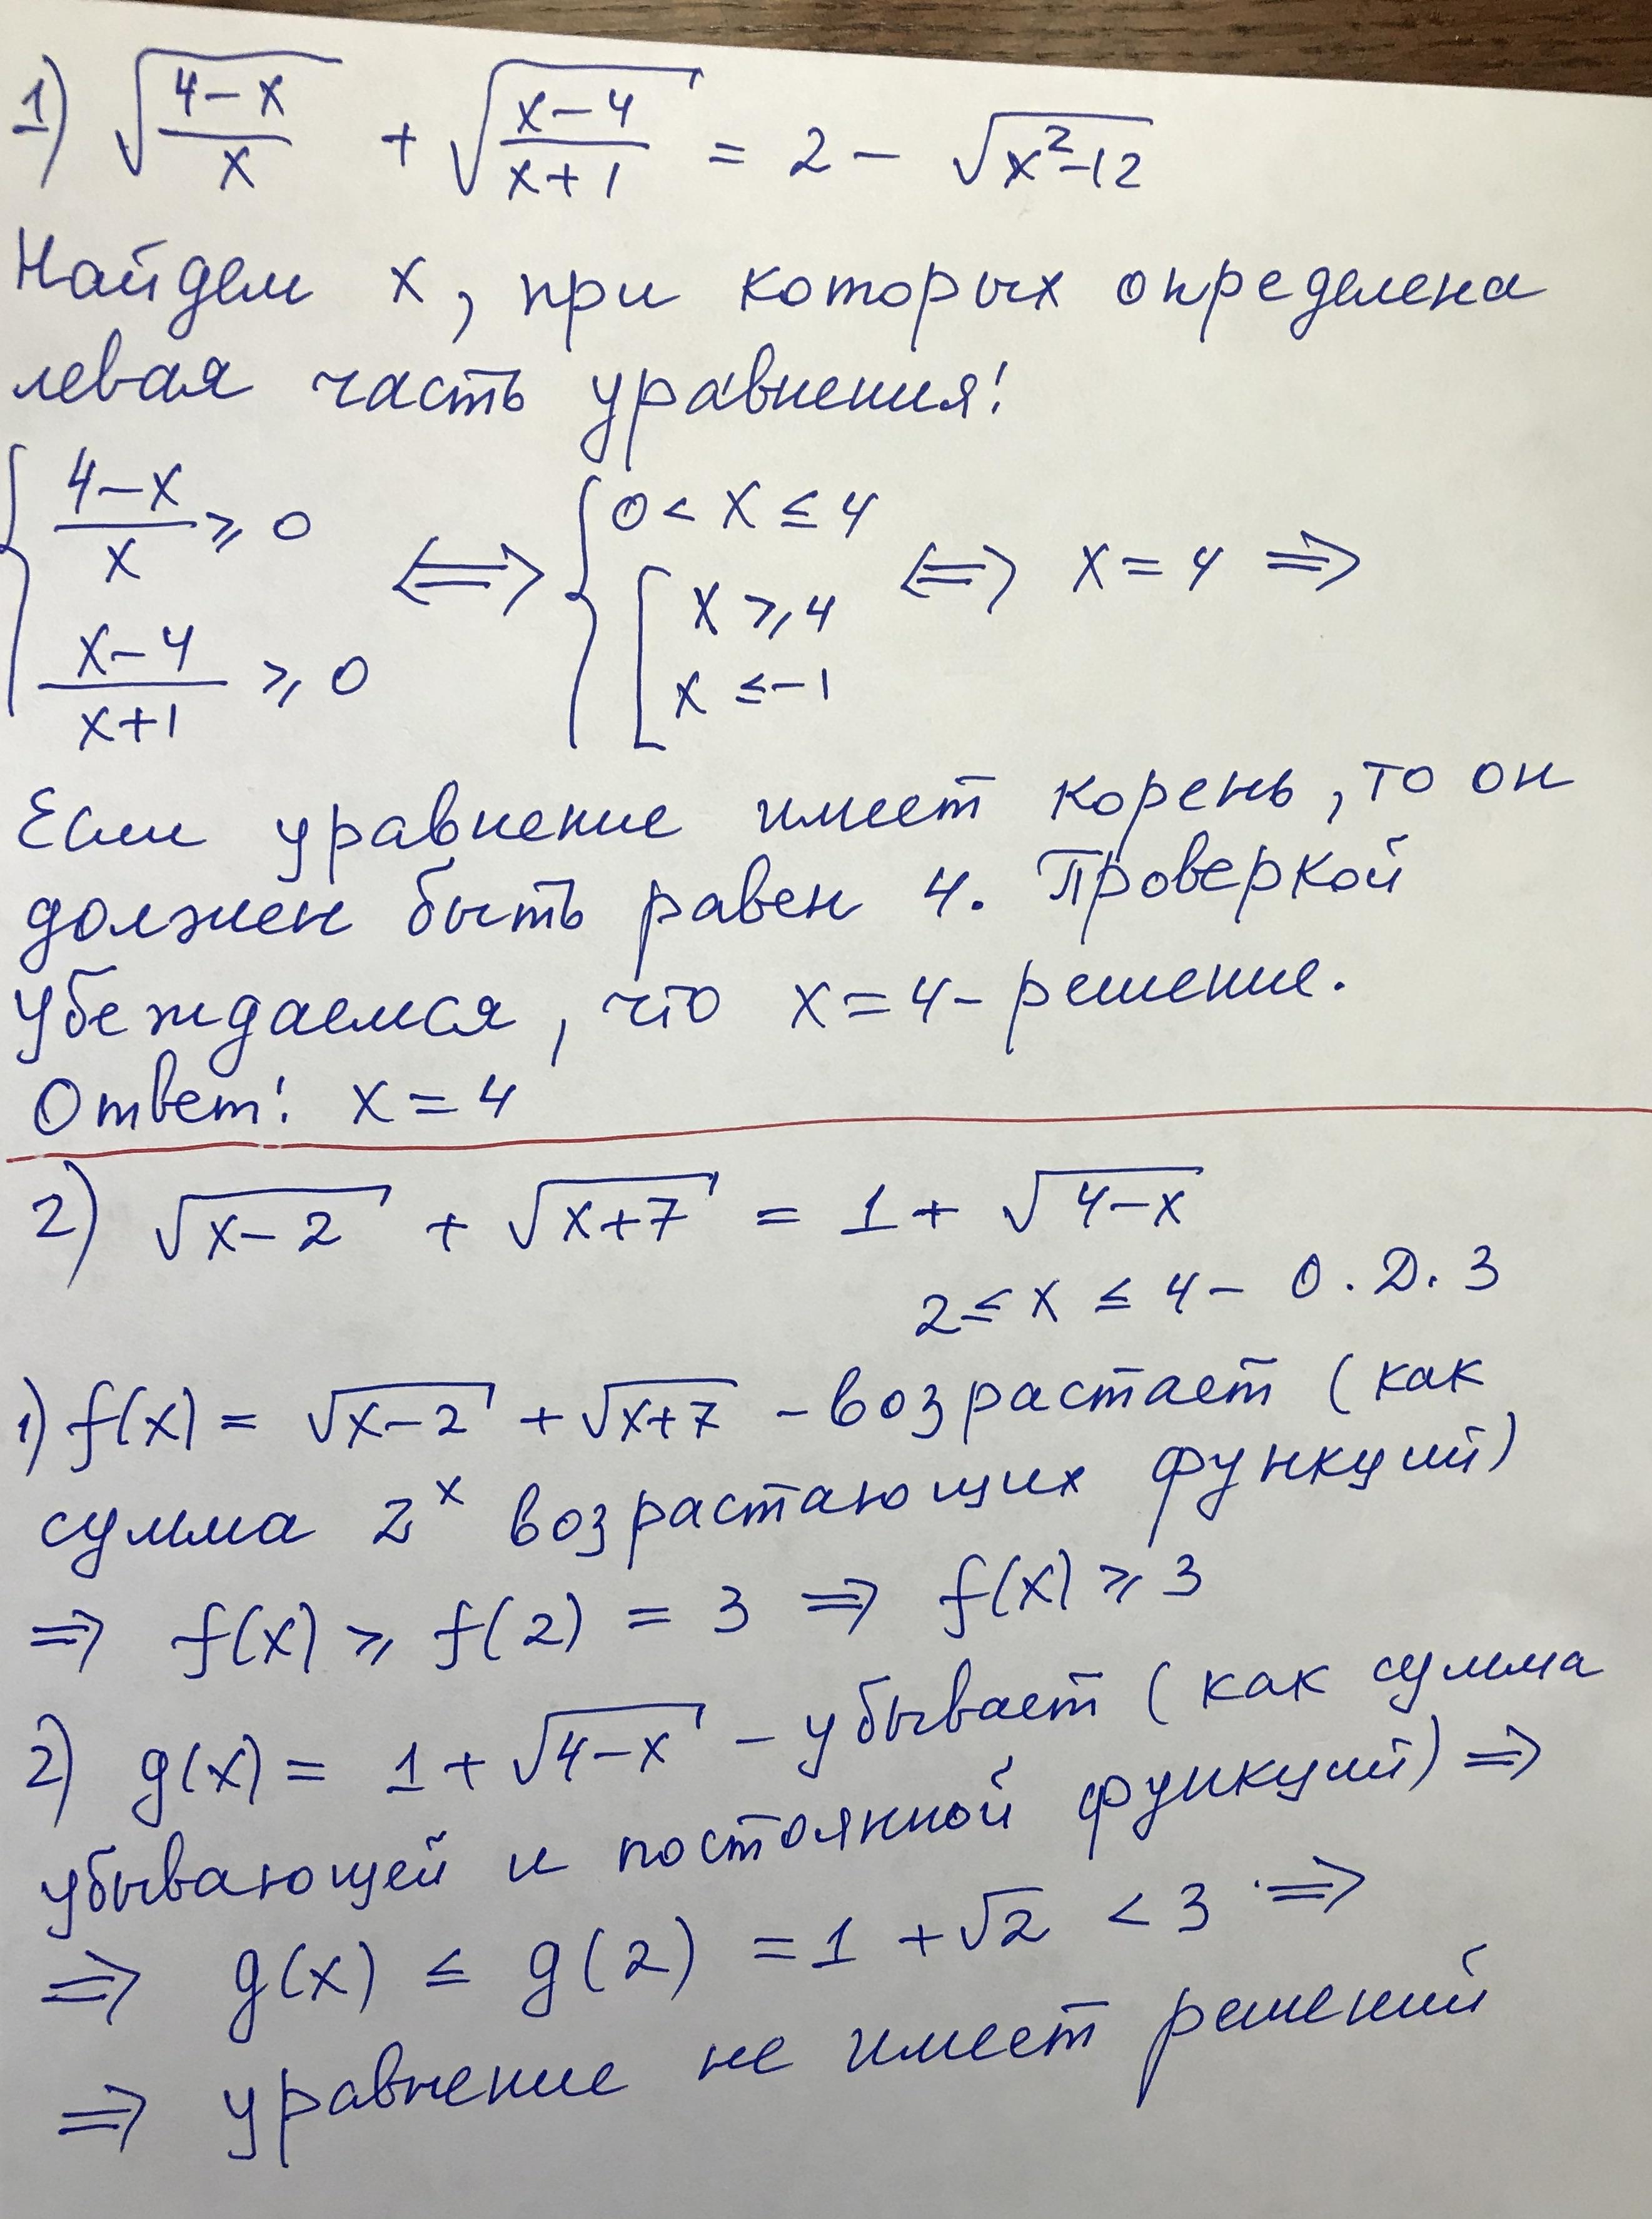 1) √((4-x)/x) + √((x-4)/(x+1)) = 2 - √(x²-12)
Найдем x, при которых определена
левая часть уравнения:
{ (4-x)/x ≥ 0 ; (x-4)/(x+1) ≥ 0 ⟺ { 0 < x ≤ 4 ; [ x ≥ 4 ; x ≤ -1 ⟺ x = 4 ⟹
Если уравнение имеет корень, то он
должен быть равен 4. Проверкой
убеждаемся, что x = 4 - решение.
Ответ: x = 4
2) √(x-2) + √(x+7) = 1 + √(4-x)
2 ≤ x ≤ 4 - О.Д.З
1) f(x) = √(x-2) + √(x+7) - возрастает (как
сумма 2ˣ возрастающих функций)
⟹ f(x) ≥ f(2) = 3 ⟹ f(x) ≥ 3
2) g(x) = 1 + √(4-x) - убывает (как сумма
убывающей и постоянной функций) ⟹
⟹ g(x) ≤ g(2) = 1 + √2 < 3 ⟹
⟹ уравнение не имеет решений